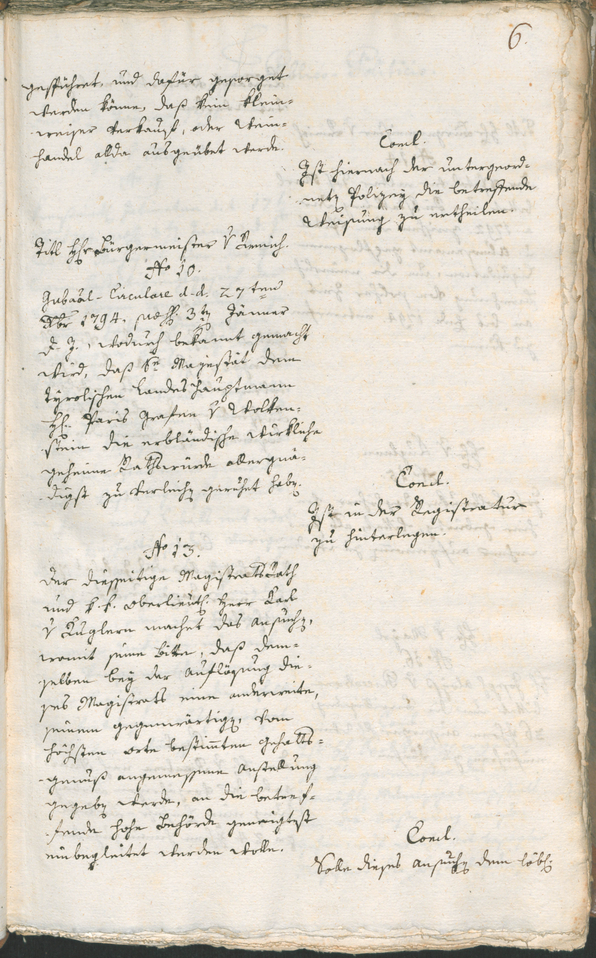 6.
geführet, und dafür gesorget
werden könne, daß kein klein-
weiser Verkauf, oder Wein-
handel allda ausgeübet werde.
Concl.
Ist hiernach der untergeord-
neten Polizey die betreffende
Weisung zu ertheilen.
Titl Hr Bürgermeister v
No 10.
Gubäal-Circulare d.d. 27ten
Xbr 1794. 3ten Jänner
d. J., wodurch bekannt gemacht
wird, daß Se Majestät dem
tyrolischen Landeshauptmann
Hr. Paris Grafen v Wolken-
stein die erbländische wirkliche
geheime Rathswürde allergnä-
digst zu verleihen geruhet habe.
Concl.
Ist in der Registratur
zu hinterlegen.
No 13.
Der diesseitige Magistratsrath
und k. k. Oberlieut. Herr Karl
v Kuglern machet das Ansuchen,
womit seine Bitte, daß dem-
selben bey der Auflösung die-
ses Magistrats eine anderweite,
seinem gegenwärtigen, vom
höchsten Orte bestimmten Gehalts-
genuß angemessene Anstellung
gegeben werde, an die betref-
fende hohe Behörde geneigtest
einbegleitet werden wolle.
Concl.
Solle dieses Ansuchen dem löbl.